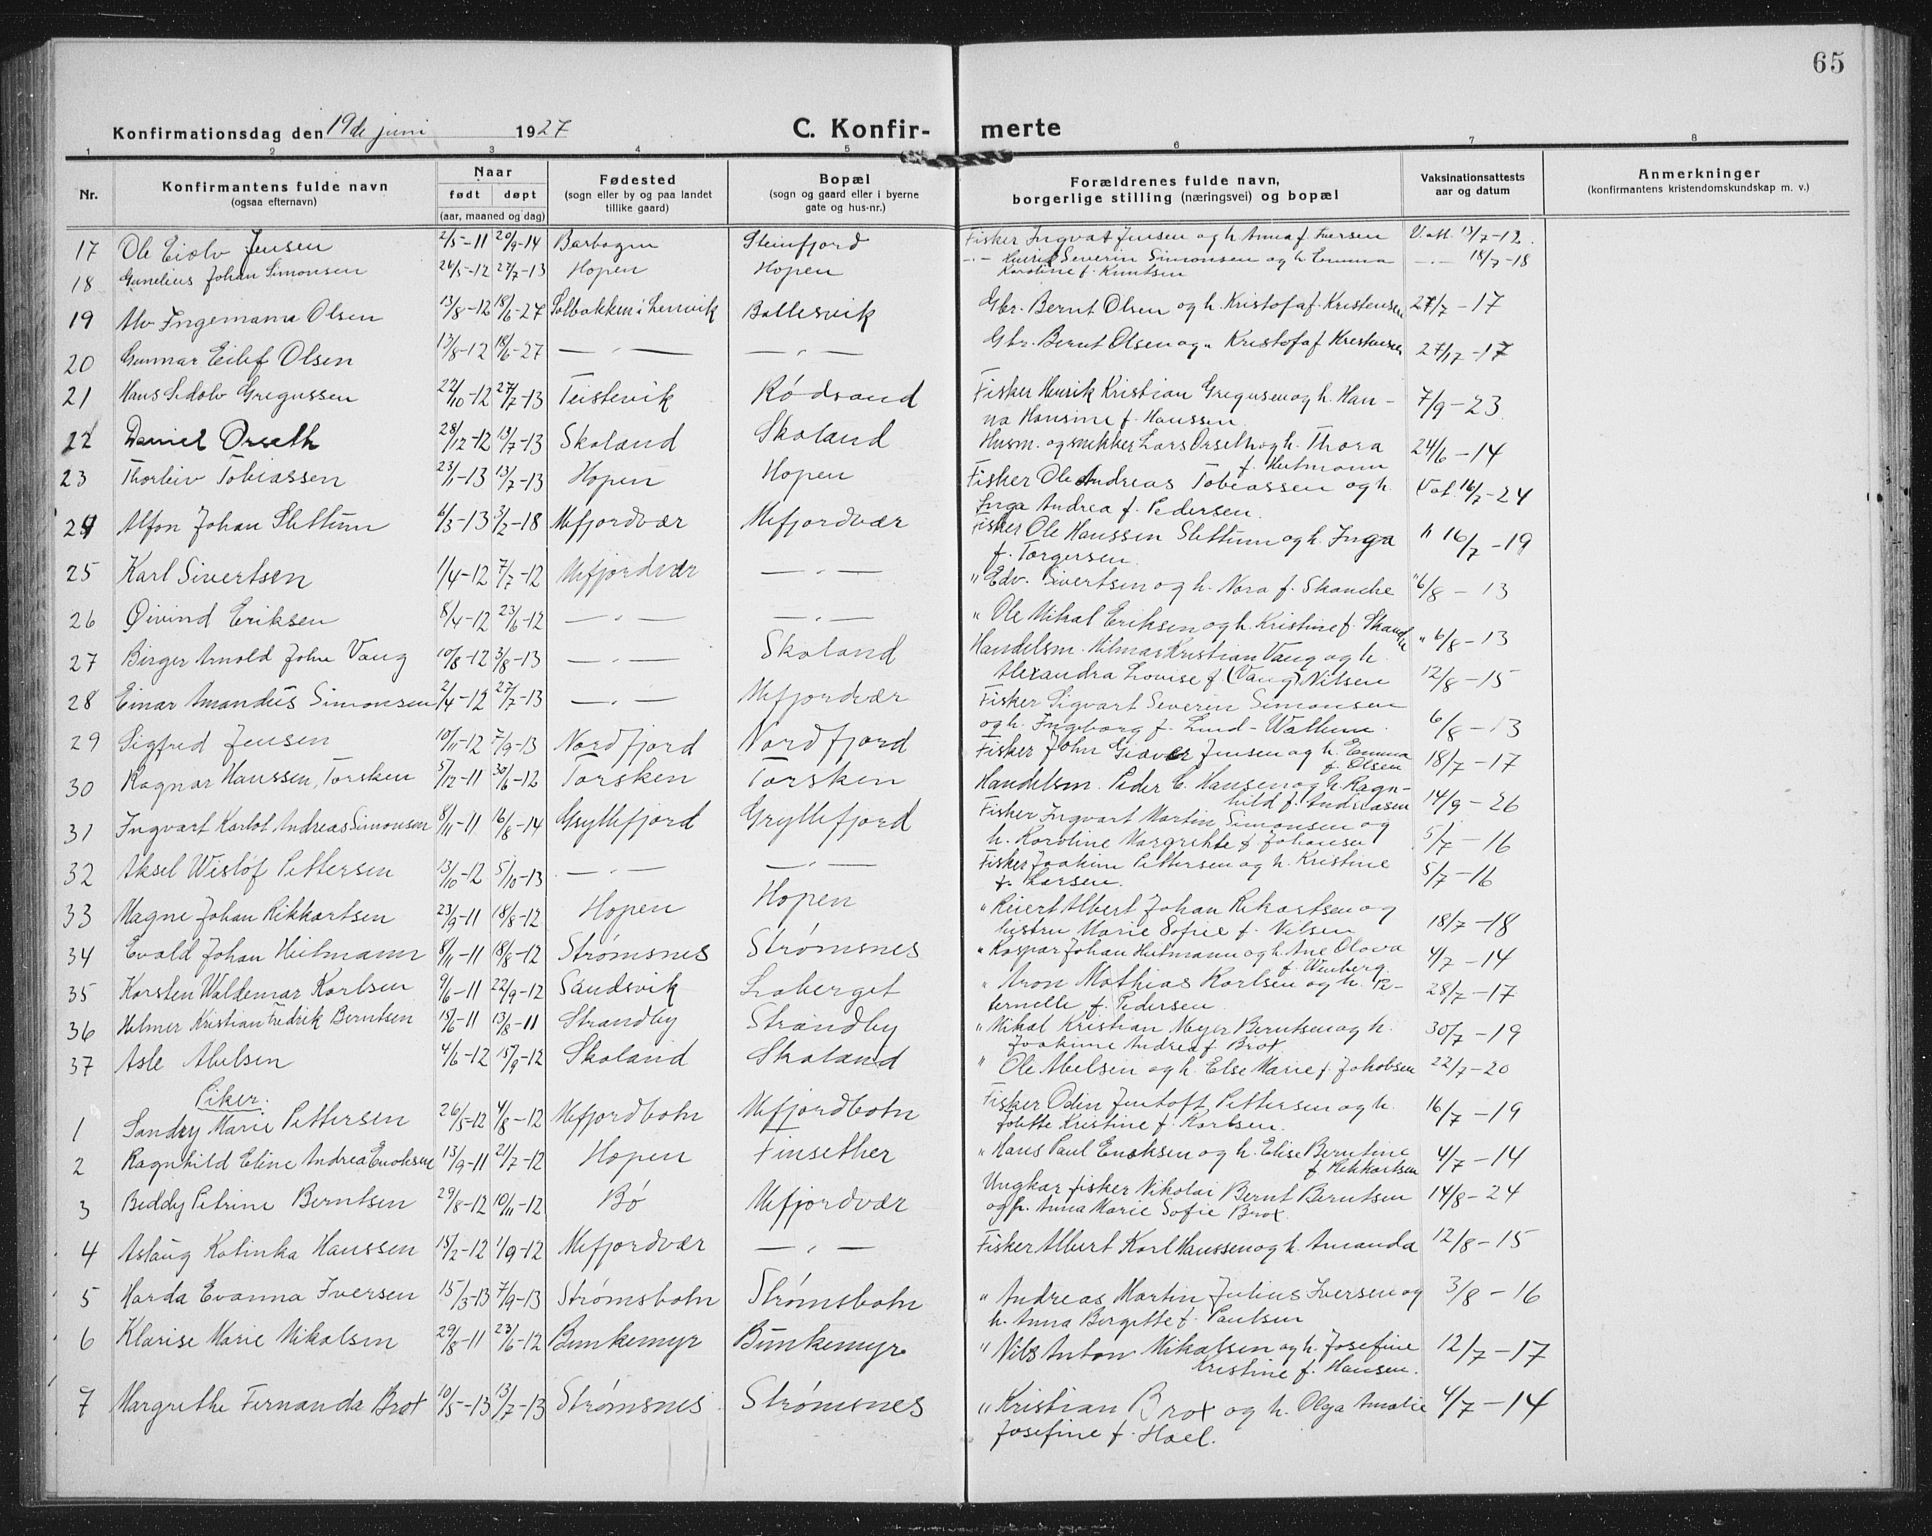 65
Konfirmationsdag den 19de juni 1927
C. Konfir- merte
1 2 3 4 5 6 7 8
Nr.
Konfirmantens fulde navn
(ogsaa efternavn)
Naar
født døpt
(aar, maaned og dag)
Fødested
(sogn eller by og paa landet
tillike gaard)
Bopæl
(sogn og gaard eller i byerne
gate og hus-nr.)
Forældrenes fulde navn,
borgerlige stilling (næringsvei) og bopæl
Vaksinationsattests
aar og datum
Anmerkninger
(konfirmantens kristendomskundskap m. v.)
17 Ole Eidolv Jensen 2/5-11 20/9-14 Barbogen Steinfjord Fisker Ingvat Jensen og h. Anna f. Iversen V.att. 13/7-12.
18 Gunelius Johan Simonsen 26/5-12 27/7-13 Hopen Hopen -"- Severin Simonsen og h. Emma -"- 18/7-18
Karoline f. Knutsen
19 Alv Ingemann Olsen 13/8-12 18/6-27 Solbakken i Lenvik Ballesvik Gbr. Bernt Olsen og h. Kristofa f. Kristensen 27/7-17
20 Gunnar Eilef Olsen 13/8-12 18/6-27 -"- -"- Gbr. Bernt Olsen og " Kristofa f Kristensen 27/17-17
21 Hans Sidolv Gregussen 22/10-12 27/7-13 Teistevik Rødsand Fisker Henrik Kristian Gregusen og h. Han-
na Hansine f. Hanssen 7/9-23.
22 Daniel Ørseth 28/12-12 13/7-13 Skaland Skaland Husm. og snekker Lars Ørseth og h. Thora
f. Heitmann 24/6-14
23 Thorleiv Tobiassen 23/1-13 13/7-13 Hopen Hopen Fisker Ole Andreas Tobiassen og h.
Inga Andrea f. Pedersen. Vat. 16/7-24
24 Alfon Johan Slettum 6/3-13 3/2-18 Mefjordvær Mefjordvær Fisker Ole Hanssen Slettum og h. Inga
f. Torgersen. " 16/7-19
25 Karl Sivertsen 1/4-12 7/7-12 Mefjordvær -"- " Edv. Sivertsen og h. Nora f. Skanche " 6/8-13
26 Øivind Eriksen 8/4-12 23/6-12 -"- -"- " Ole Mikal Eriksen og h. Kristine f. Skanche " 6/8-13
27 Birger Arnold John Vang 10/8-12 3/8-13 -"- Skaland Handelsm. Hilmar Kristian Vang og h.
Alexandra Lovise f. (Vang) Nilsen 12/8-15
28 Einar Amandus Simonsen 2/4-12 27/7-13 -"- Mefjordvær Fisker Sigvart Severin Simonsen
og h. Ingeborg f. Lund-Wathum. 6/8-13
29 Sigfred Jensen 10/11-12 7/9-13 Nordfjord Nordfjord Fisker John Giæver Jensen og h. Emma
f. Olsen 18/7-17
30 Ragnar Hanssen, Torsken 5/12-11 30/6-12 Torsken Torsken Handelsm. Peder C. Hansen og h. Ragn-
hild f. Andreasen 14/9-26
31 Ingvart Karlot Andreas Simonsen 8/11-11 16/8-14 Gryllefjord Gryllefjord Fisker Ingvart Martin Simonsen og
h. Karoline Margrethe f Johansen 5/7-16
32 Aksel Wisløf Pettersen 13/10-12 5/10-13 -"- -"- Fisker Joakim Pettersen og h. Kristine
f. Larsen. 5/7-16
33 Magne Johan Rikkartsen 23/9-11 18/8-12 Hopen Hopen " Reiert Albert Johan Rikartsen og
hustru Marie Sofie f. Nilsen 18/7-18
34 Evald Johan Heitmann 8/11-11 18/8-12 Strømsnes Strømsnes " Kaspar Johan Heitmann og h. Ane Olava
f. Winberg. 4/7-14
35 Karsten Waldemar Karlsen 9/6-11 22/9-12 Sandsvik Laberget " Aron Mathias Karlsen og h. Pe-
ternelle f. Pedersen. 28/7-17
36 Helmer Kristian Fredrik Berntsen 15/6-11 13/8-11 Strandby Strandby " Mikal Kristian Meyer Berntsen og h.
Joakime Andrea f Brox 30/7-19
37 Asle Abelsen 4/6-12 15/9-12 Skaland Skaland " Ole Abelsen og h. Else Marie f. Jakobsen 22/7-20
Piker.
1 Sandry Marie Pettersen 26/5-12 4/8-12 Mefjordbotn Mefjordbotn Fisker Odin Jentoft Pettersen og h.
Jolette Kristine f. Karlsen. 16/7-19
2 Ragnhild Eline Andrea Enoksen 13/9-11 21/7-12 Hopen Finsether " Hans Paul Enoksen og h. Elise Berntine
f. Rikkartsen 4/7-14
3 Beddy Petrine Berntsen 29/8-12 10/11-12 Bø Mefjordvær Ungkar fisker Nikolai Bernt Berntsen
og p. Anna Marie Sofie Brox. 14/8-24
4 Aslaug Katinka Hanssen 15/2-12 1/9-12 Mefjordvær -"- Fisker Albert Karl Hanssen og h. Amanda 12/8-15
5 Harda Evanna Iversen 15/3-13 7/9-13 Strømsbotn Strømsbotn " Andreas Martin Julius Iversen og
h. Anna Bergitte f. Paulsen 3/8-16
6 Klarise Marie Mikalsen 29/8-11 23/6-12 Bunkemyr Bunkemyr " Nils Anton Mikalsen og h. Josefine
Kristine f. Hansen. 12/7-17
7 Margrethe Fernanda Brox 10/5-13 13/7-13 Strømsnes. Strømsnes " Kristian Brox og h. Olga Amalie
Josefine f. Hoel. 4/7-14